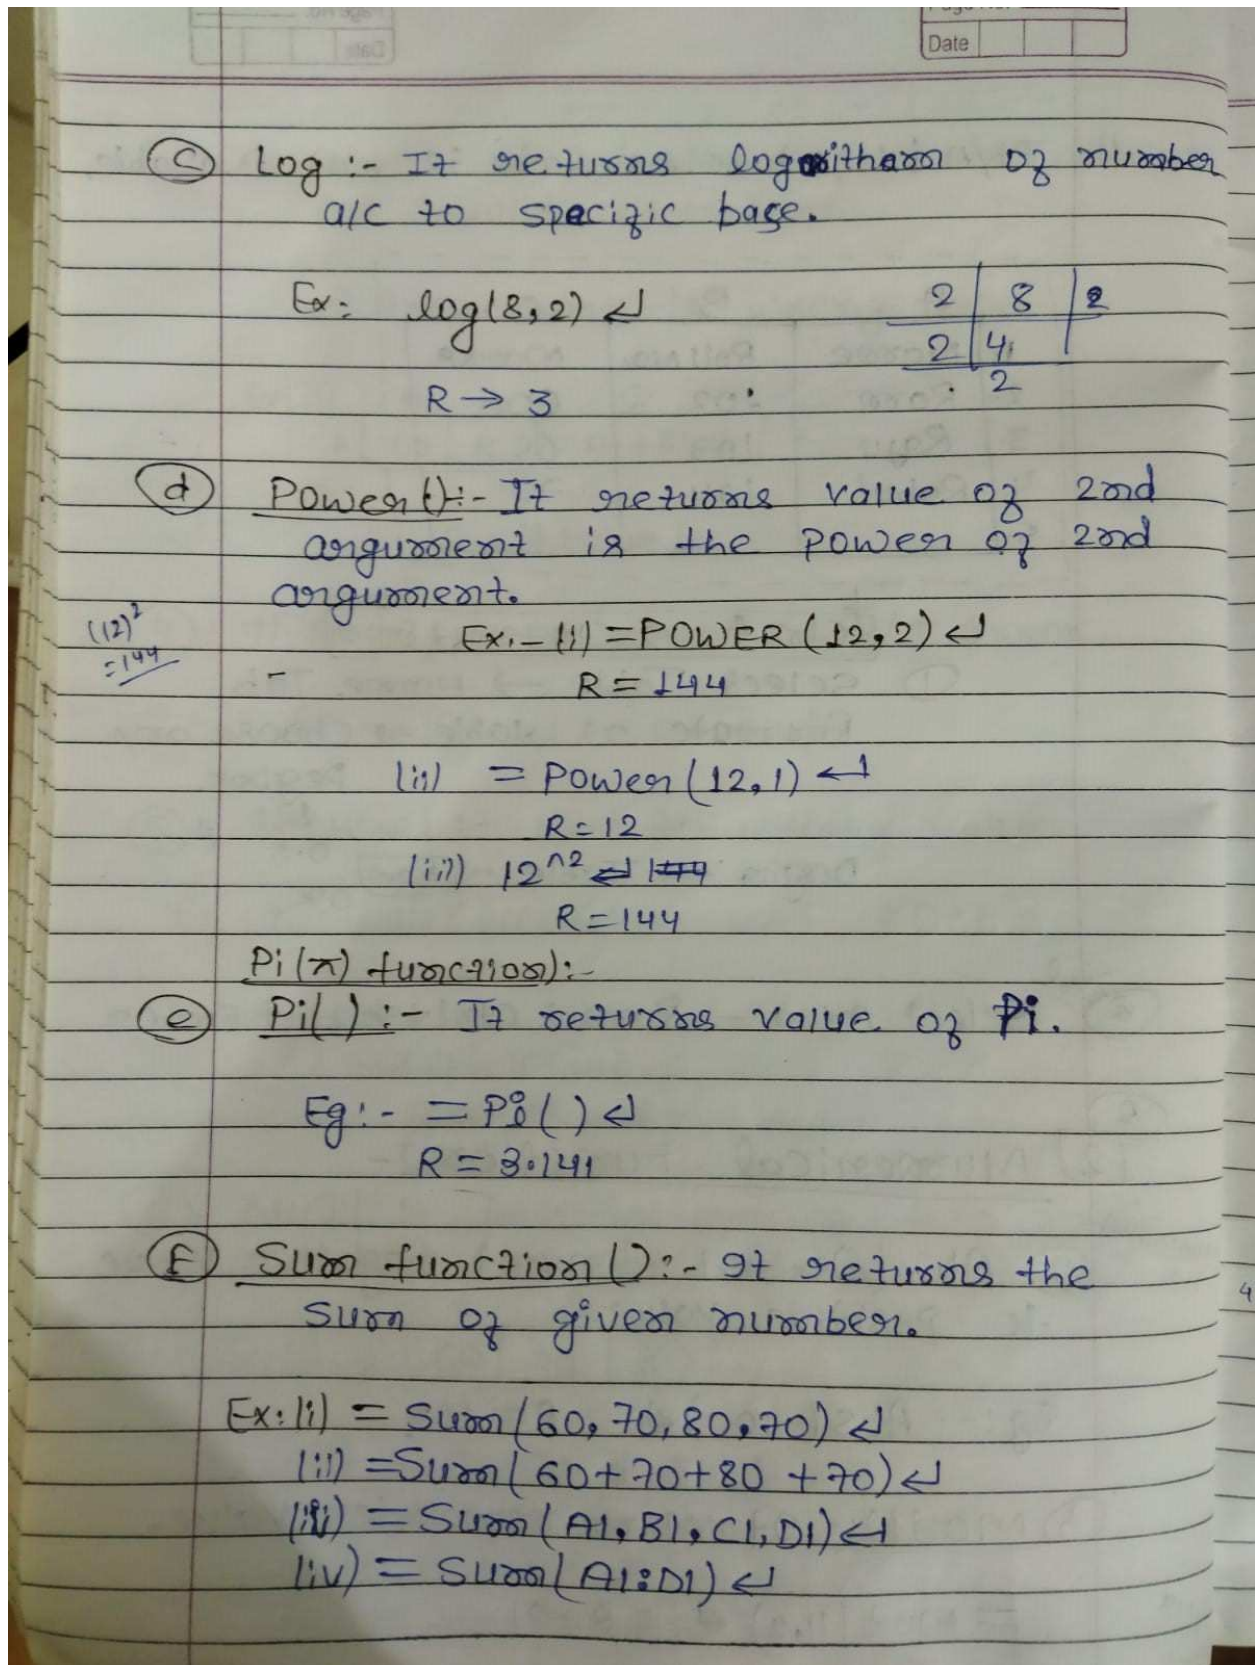 Date
(c) Log :- It returns logoritham of number
a/c to specific base.
Ex: log(8,2) ↵
2 | 8 | 2
2 | 4
2
R → 3
(d) Power():- It returns value of 2nd
argument is the power of 2nd
argument.
(12)²
=144
Ex.- (i) =POWER (12,2) ↵
R = 144
(ii) = Power (12,1) ↵
R = 12
(iii) 12^2 ↵ 144
R = 144
Pi (π) function):-
(e) Pi( ) :- It returns value of Pi.
Eg:- = Pi( ) ↵
R = 3.141
(F) Sum function () :- It returns the
sum of given number.
Ex: (i) = Sum (60, 70, 80, 70) ↵
(ii) =Sum( 60+70+80 +70) ↵
(iii) = Sum (A1, B1, C1, D1) ↵
(iv) = Sum( A1:D1) ↵